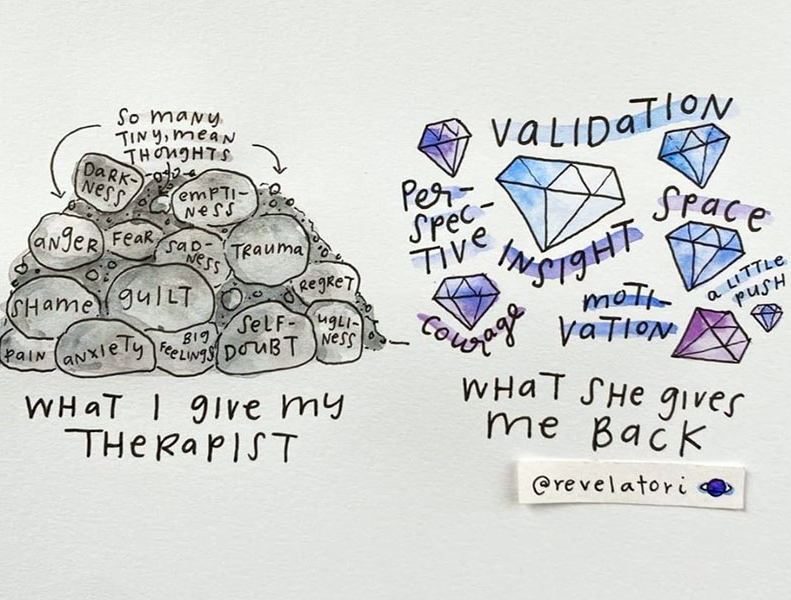 So many
tiny, mean
thoughts
Dark-
ness
empti-
ness
anger
Fear
sad-
ness
Trauma
Regret
Shame
guilt
Self-
Doubt
ugli-
ness
pain
anxiety
Big
Feelings
What I give my
Therapist
Validation
Per-
spec-
tive
Insight
Space
a little
push
Courage
moti-
vation
What she gives
me back
@revelatori